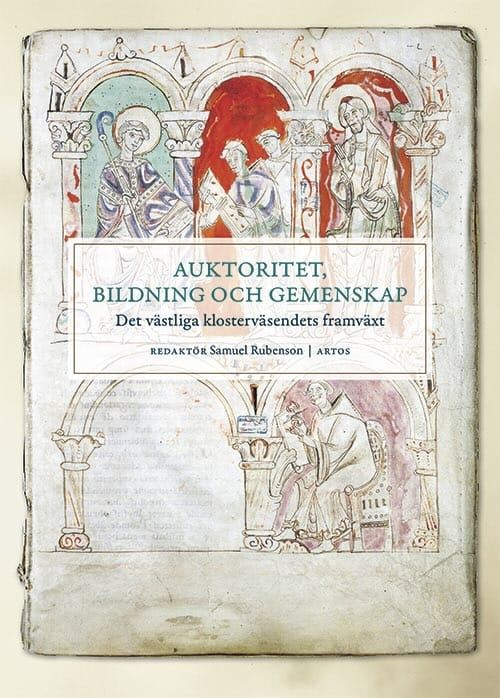 AUKTORITET,
BILDNING OCH GEMENSKAP
Det västliga klosterväsendets framväxt
REDAKTÖR Samuel Rubenson | ARTOS